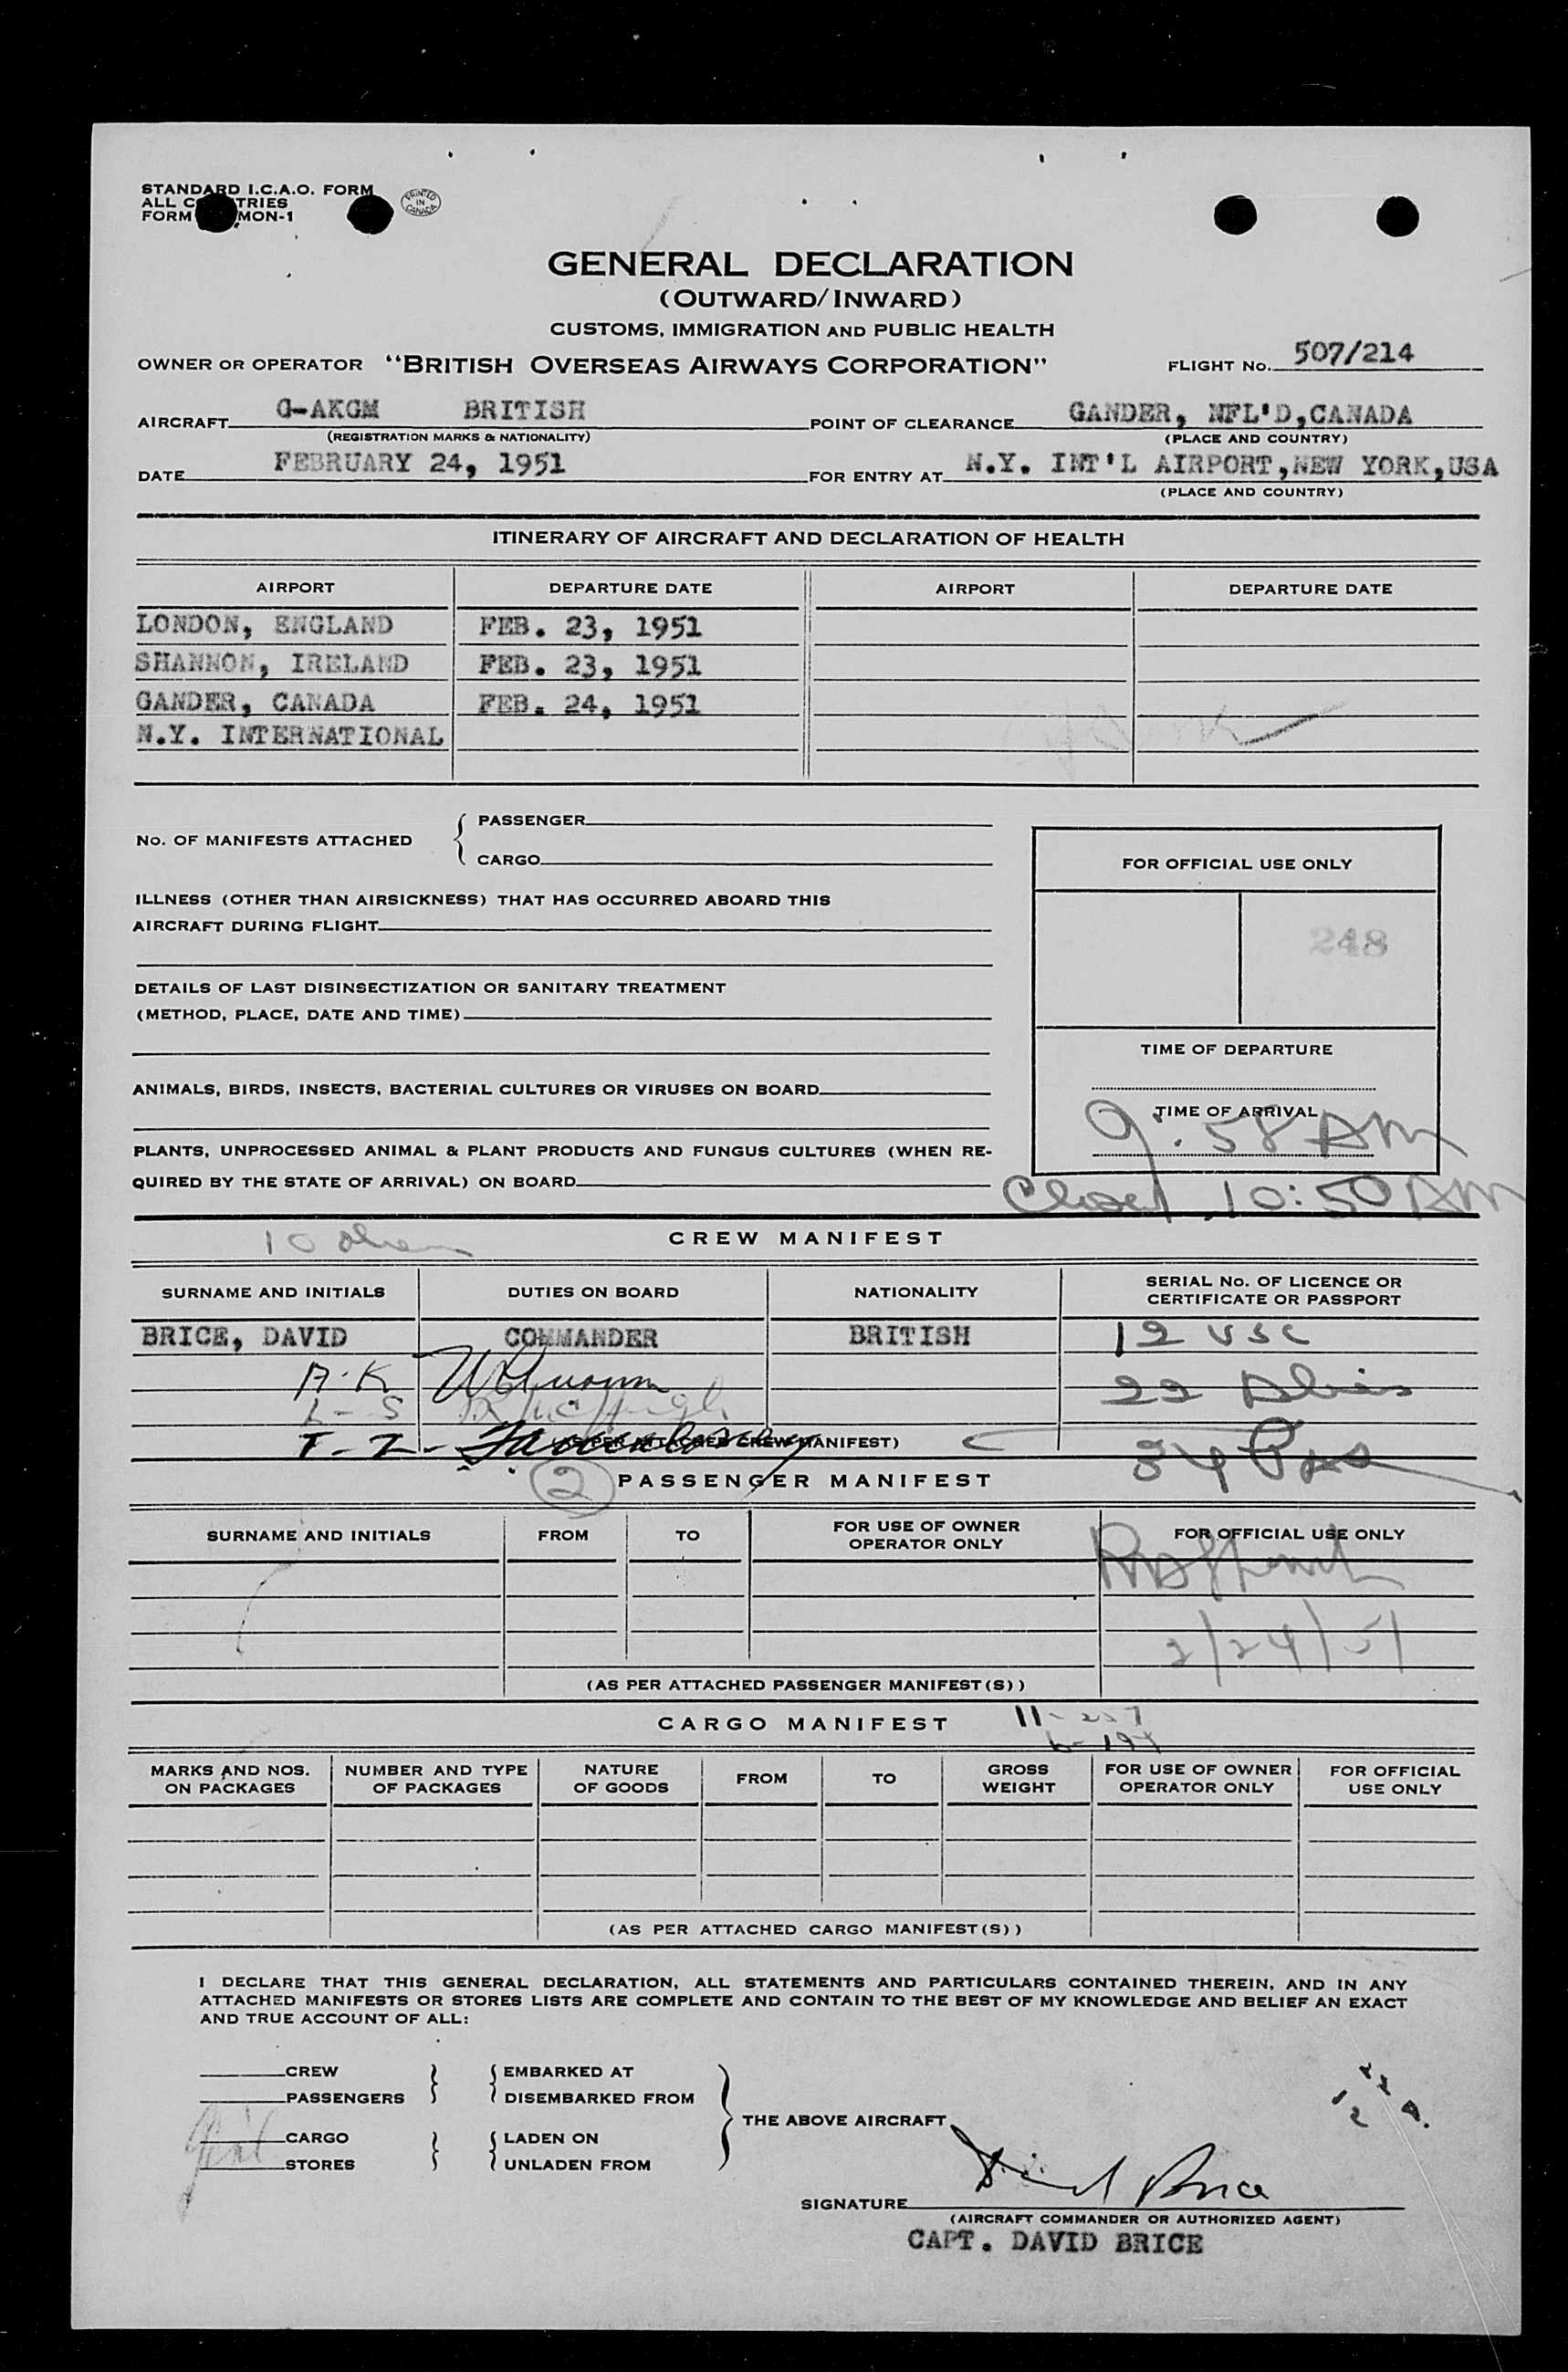 STANDARD I.C.A.O. FORM
ALL C TRIES
FORM MON-1
PRINTED IN CANADA
GENERAL DECLARATION
(OUTWARD/INWARD)
CUSTOMS, IMMIGRATION AND PUBLIC HEALTH
OWNER OR OPERATOR "BRITISH OVERSEAS AIRWAYS CORPORATION" FLIGHT No. 507/214
AIRCRAFT G-AKGM BRITISH POINT OF CLEARANCE GANDER, NFL'D,CANADA
(REGISTRATION MARKS & NATIONALITY) (PLACE AND COUNTRY)
DATE FEBRUARY 24, 1951 FOR ENTRY AT N.Y. INT'L AIRPORT,NEW YORK,USA
(PLACE AND COUNTRY)
ITINERARY OF AIRCRAFT AND DECLARATION OF HEALTH
AIRPORT DEPARTURE DATE AIRPORT DEPARTURE DATE
LONDON, ENGLAND FEB. 23, 1951
SHANNON, IRELAND FEB. 23, 1951
GANDER, CANADA FEB. 24, 1951
N.Y. INTERNATIONAL
No. OF MANIFESTS ATTACHED
PASSENGER
CARGO
FOR OFFICIAL USE ONLY
ILLNESS (OTHER THAN AIRSICKNESS) THAT HAS OCCURRED ABOARD THIS
AIRCRAFT DURING FLIGHT
248
DETAILS OF LAST DISINSECTIZATION OR SANITARY TREATMENT
(METHOD, PLACE, DATE AND TIME)
TIME OF DEPARTURE
ANIMALS, BIRDS, INSECTS, BACTERIAL CULTURES OR VIRUSES ON BOARD
TIME OF ARRIVAL
9:58 AM
PLANTS, UNPROCESSED ANIMAL & PLANT PRODUCTS AND FUNGUS CULTURES (WHEN RE-
QUIRED BY THE STATE OF ARRIVAL) ON BOARD
10:50 AM
10
CREW MANIFEST
SURNAME AND INITIALS DUTIES ON BOARD NATIONALITY SERIAL No. OF LICENCE OR
CERTIFICATE OR PASSPORT
BRICE, DAVID COMMANDER BRITISH 12 USC
A-K 22
L-S
T-Z (AS PER ATTACHED CREW MANIFEST) 34
2 PASSENGER MANIFEST
SURNAME AND INITIALS FROM TO FOR USE OF OWNER
OPERATOR ONLY FOR OFFICIAL USE ONLY
2/24/51
(AS PER ATTACHED PASSENGER MANIFEST(S))
CARGO MANIFEST
MARKS AND NOS.
ON PACKAGES NUMBER AND TYPE
OF PACKAGES NATURE
OF GOODS FROM TO GROSS
WEIGHT FOR USE OF OWNER
OPERATOR ONLY FOR OFFICIAL
USE ONLY
(AS PER ATTACHED CARGO MANIFEST(S))
I DECLARE THAT THIS GENERAL DECLARATION, ALL STATEMENTS AND PARTICULARS CONTAINED THEREIN, AND IN ANY
ATTACHED MANIFESTS OR STORES LISTS ARE COMPLETE AND CONTAIN TO THE BEST OF MY KNOWLEDGE AND BELIEF AN EXACT
AND TRUE ACCOUNT OF ALL:
CREW EMBARKED AT
PASSENGERS DISEMBARKED FROM
THE ABOVE AIRCRAFT
CARGO LADEN ON
STORES UNLADEN FROM
SIGNATURE David Brice
(AIRCRAFT COMMANDER OR AUTHORIZED AGENT)
CAPT. DAVID BRICE